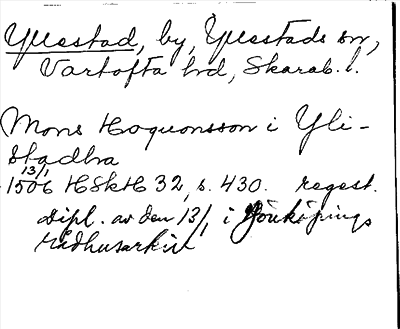 Yllestad, by, Yllestads sn,
Vartofta hd, Skarab. l.
Mons Hoquonsson i Yli-
stadha
13/1
1506 HSkH 32, s. 430. regest.
dipl. av den 13/1 i Jönköpings
rådhusarkiv